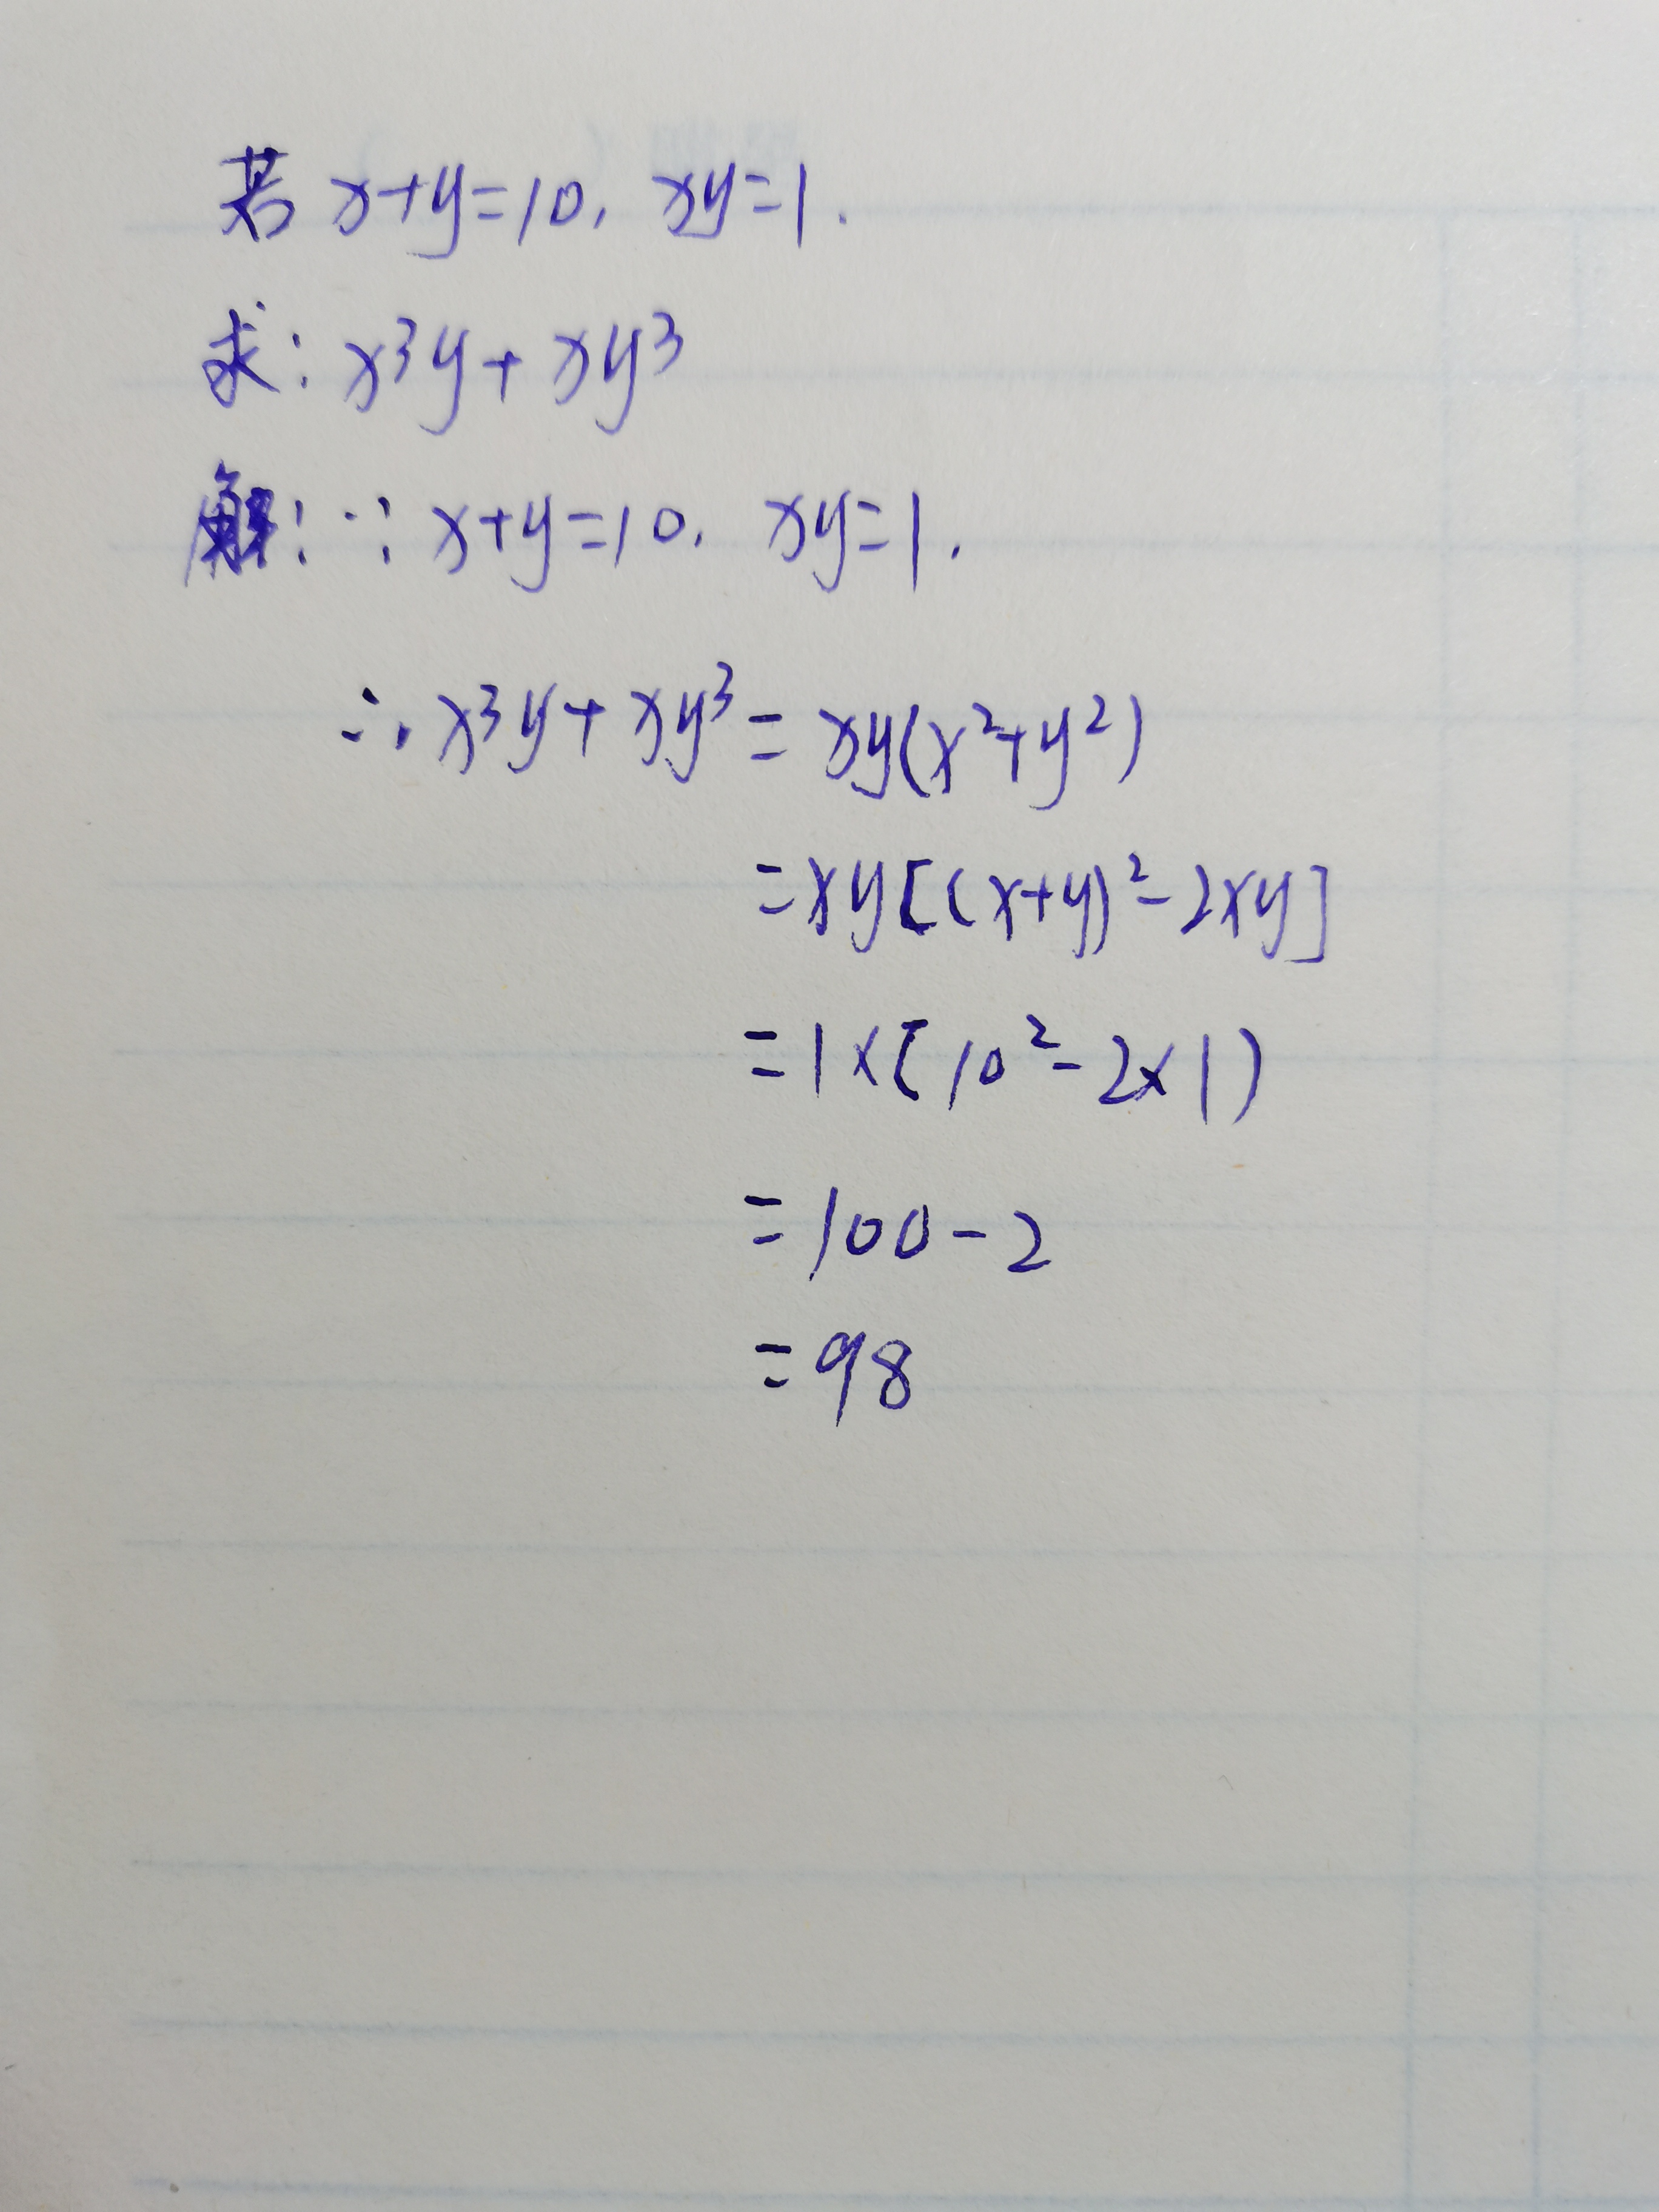 若 x+y=10, xy=1.
求: x³y+xy³
解: ∵ x+y=10, xy=1.
∴ x³y+xy³=xy(x²+y²)
=xy[(x+y)²-2xy]
=1×(10²-2×1)
=100-2
=98